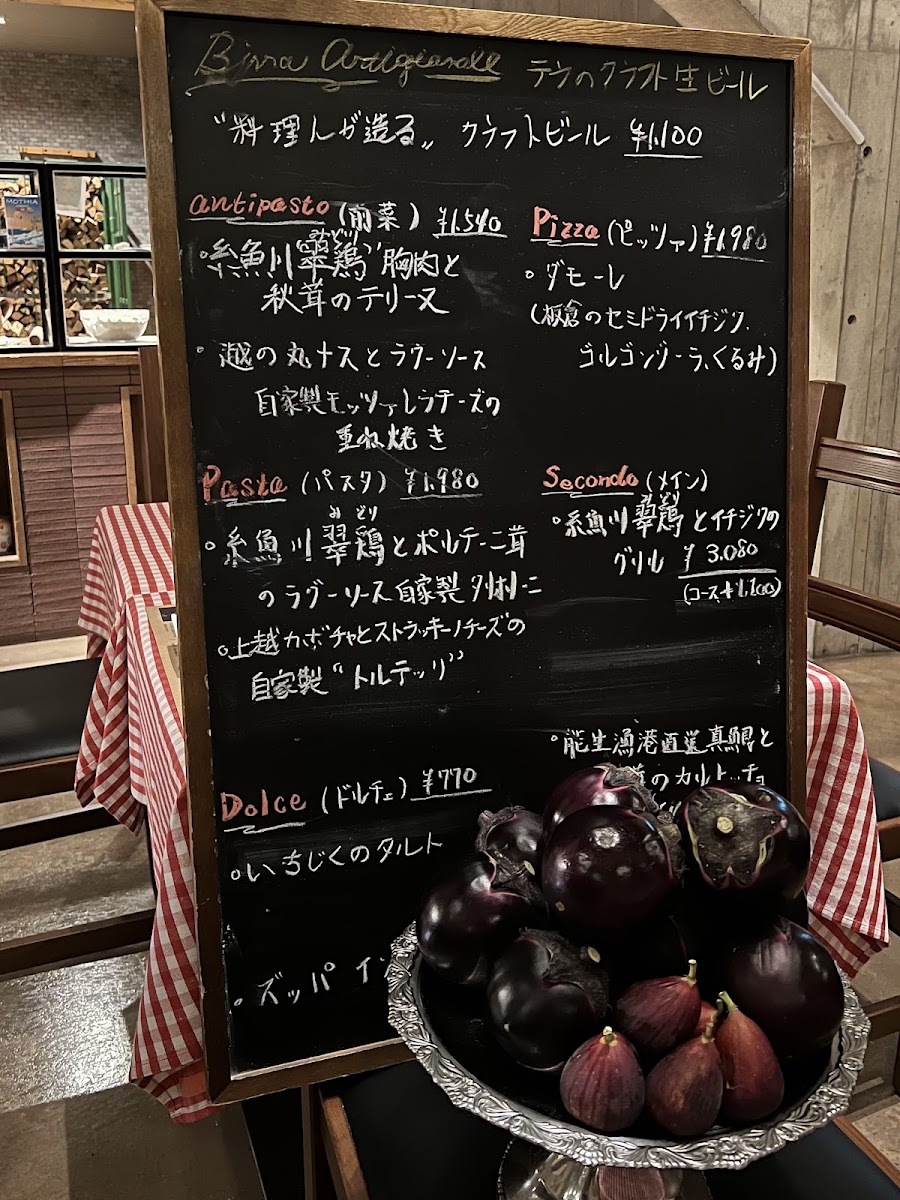 Birra Artigianale テラのクラフト生ビール
"料理人が造る" クラフトビール ¥1,100
antipasto (前菜) ¥1,540
みどり
・糸魚川翠鶏胸肉と
秋茸のテリーヌ
・越の丸ナスとラグーソース
自家製モッツァレラチーズの
重ね焼き
Pizza (ピッツァ) ¥1,980
・ダモーレ
(板倉のセミドライイチジク、
ゴルゴンゾーラ、くるみ)
Pasta (パスタ) ¥1,980
みどり
・糸魚川翠鶏とポルチーニ茸
のラグーソース自家製
・上越カボチャとストラッキーノチーズの
自家製 "トルテッリ"
Secondo (メイン)
みどり
・糸魚川翠鶏とイチジクの
グリル ¥3,080
(コース+¥1,100)
・能生漁港直送真鯛と
のカルトッチョ
Dolce (ドルチェ) ¥770
・いちじくのタルト
・ズッパ イン
MOTHIA